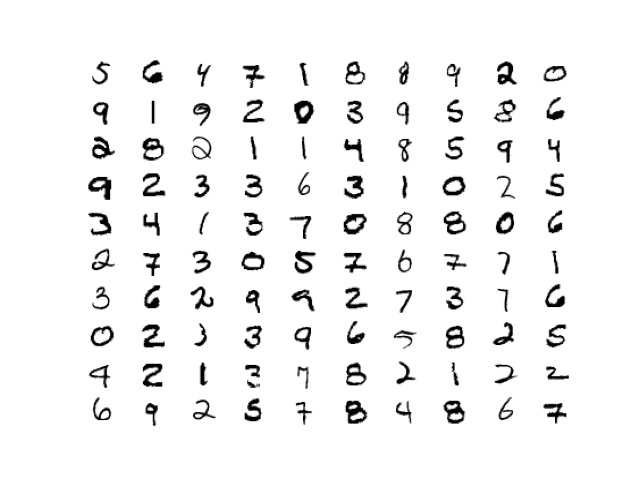 5 6 4 7 1 8 8 9 2 0
9 1 9 2 0 3 9 5 8 6
2 8 2 1 1 4 8 5 9 4
9 2 3 3 6 3 1 0 2 5
3 4 1 3 7 0 8 8 0 6
2 7 3 0 5 7 6 7 7 1
3 6 2 9 9 2 7 3 7 6
0 2 3 3 9 6 5 8 2 5
4 2 1 3 7 8 2 1 2 2
6 9 2 5 7 8 4 8 6 7